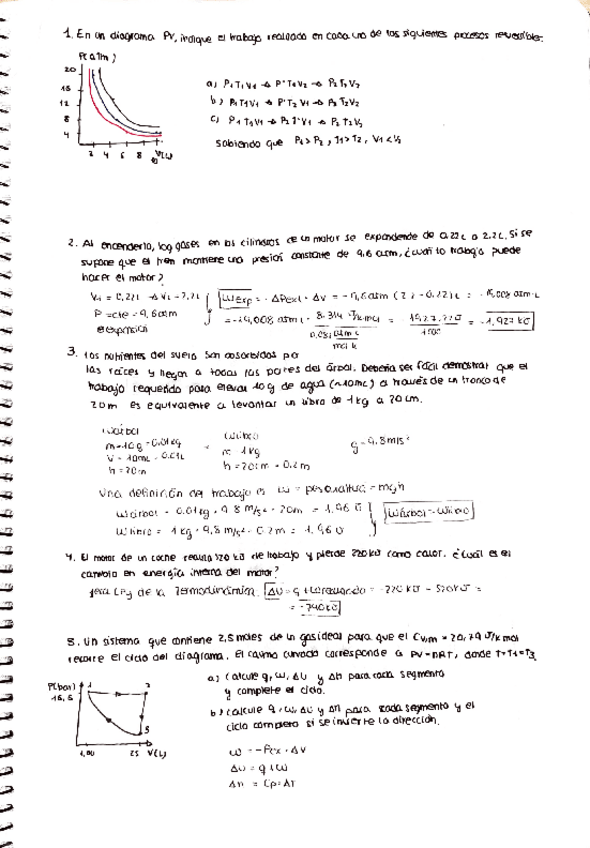 1. En un diagrama PV, indique el trabajo realizado en cada uno de los siguientes procesos reversibles:
P(atm)
20
16
12
8
4
2 4 6 8 10 V(L)
a) P1T1V1 → P'T1V2 → P2T2V2
b) P1T1V1 → P'T2V1 → P2T2V2
c) P1T1V1 → P2T'V1 → P2T2V2
Sabiendo que P1 > P2, T1 > T2, V1 < V2
2. Al encenderlo, los gases en los cilindros de un motor se expandende de 0.22L a 2.2L. Si se
supone que el tren mantiene una presión constante de 9,6 atm, ¿cuánto trabajo puede
hacer el motor?
= -1,927 kJ
3. Los nutrientes del suelo son absorbidos po
las raíces y llegan a todas las partes del árbol. Debería ser fácil demostrar que el
trabajo requerido para elevar 10g de agua (~10mL) a través de un tronco de
20m es equivalente a levantar un libro de 1kg a 20cm.
Wárbol
m=10g=0.01kg
V = 10mL = 0.01L
h = 20m
Wlibro
m 1kg
h = 20cm = 0.2m
g = 9.8m/s²
Una definición del trabajo es w = peso·altura = mgh
Wárbol = 0.01kg · 9,8 m/s² · 20m = 1.96 J
Wlibro = 1kg · 9,8 m/s² · 0.2m = 1,96 J
Wárbol = Wlibro
4. El motor de un coche realiza 520 kJ de trabajo y pierde 220kJ como calor. ¿Cuál es el
cambio en energía interna del motor?
de la Termodinámica: ΔU = q + W = -220 kJ - 520kJ =
= -740kJ
5. Un sistema que contiene 2,5 moles de un gas ideal para que el CV,m = 20,79 J/K mol
recorre el ciclo del diagrama. El camino curvado corresponde a PV=nRT, donde T=T1=T3
P(bar)
16,6
1
2
3
1,00 25 V(L)
a) Calcule q, w, ΔU y ΔH para cada segmento
y complete el ciclo.
b) Calcule q, w, ΔU y ΔH para cada segmento y el
ciclo completo si se invierte la dirección.
w = -Pex · ΔV
ΔU = q + w
ΔH = Cp = ΔT